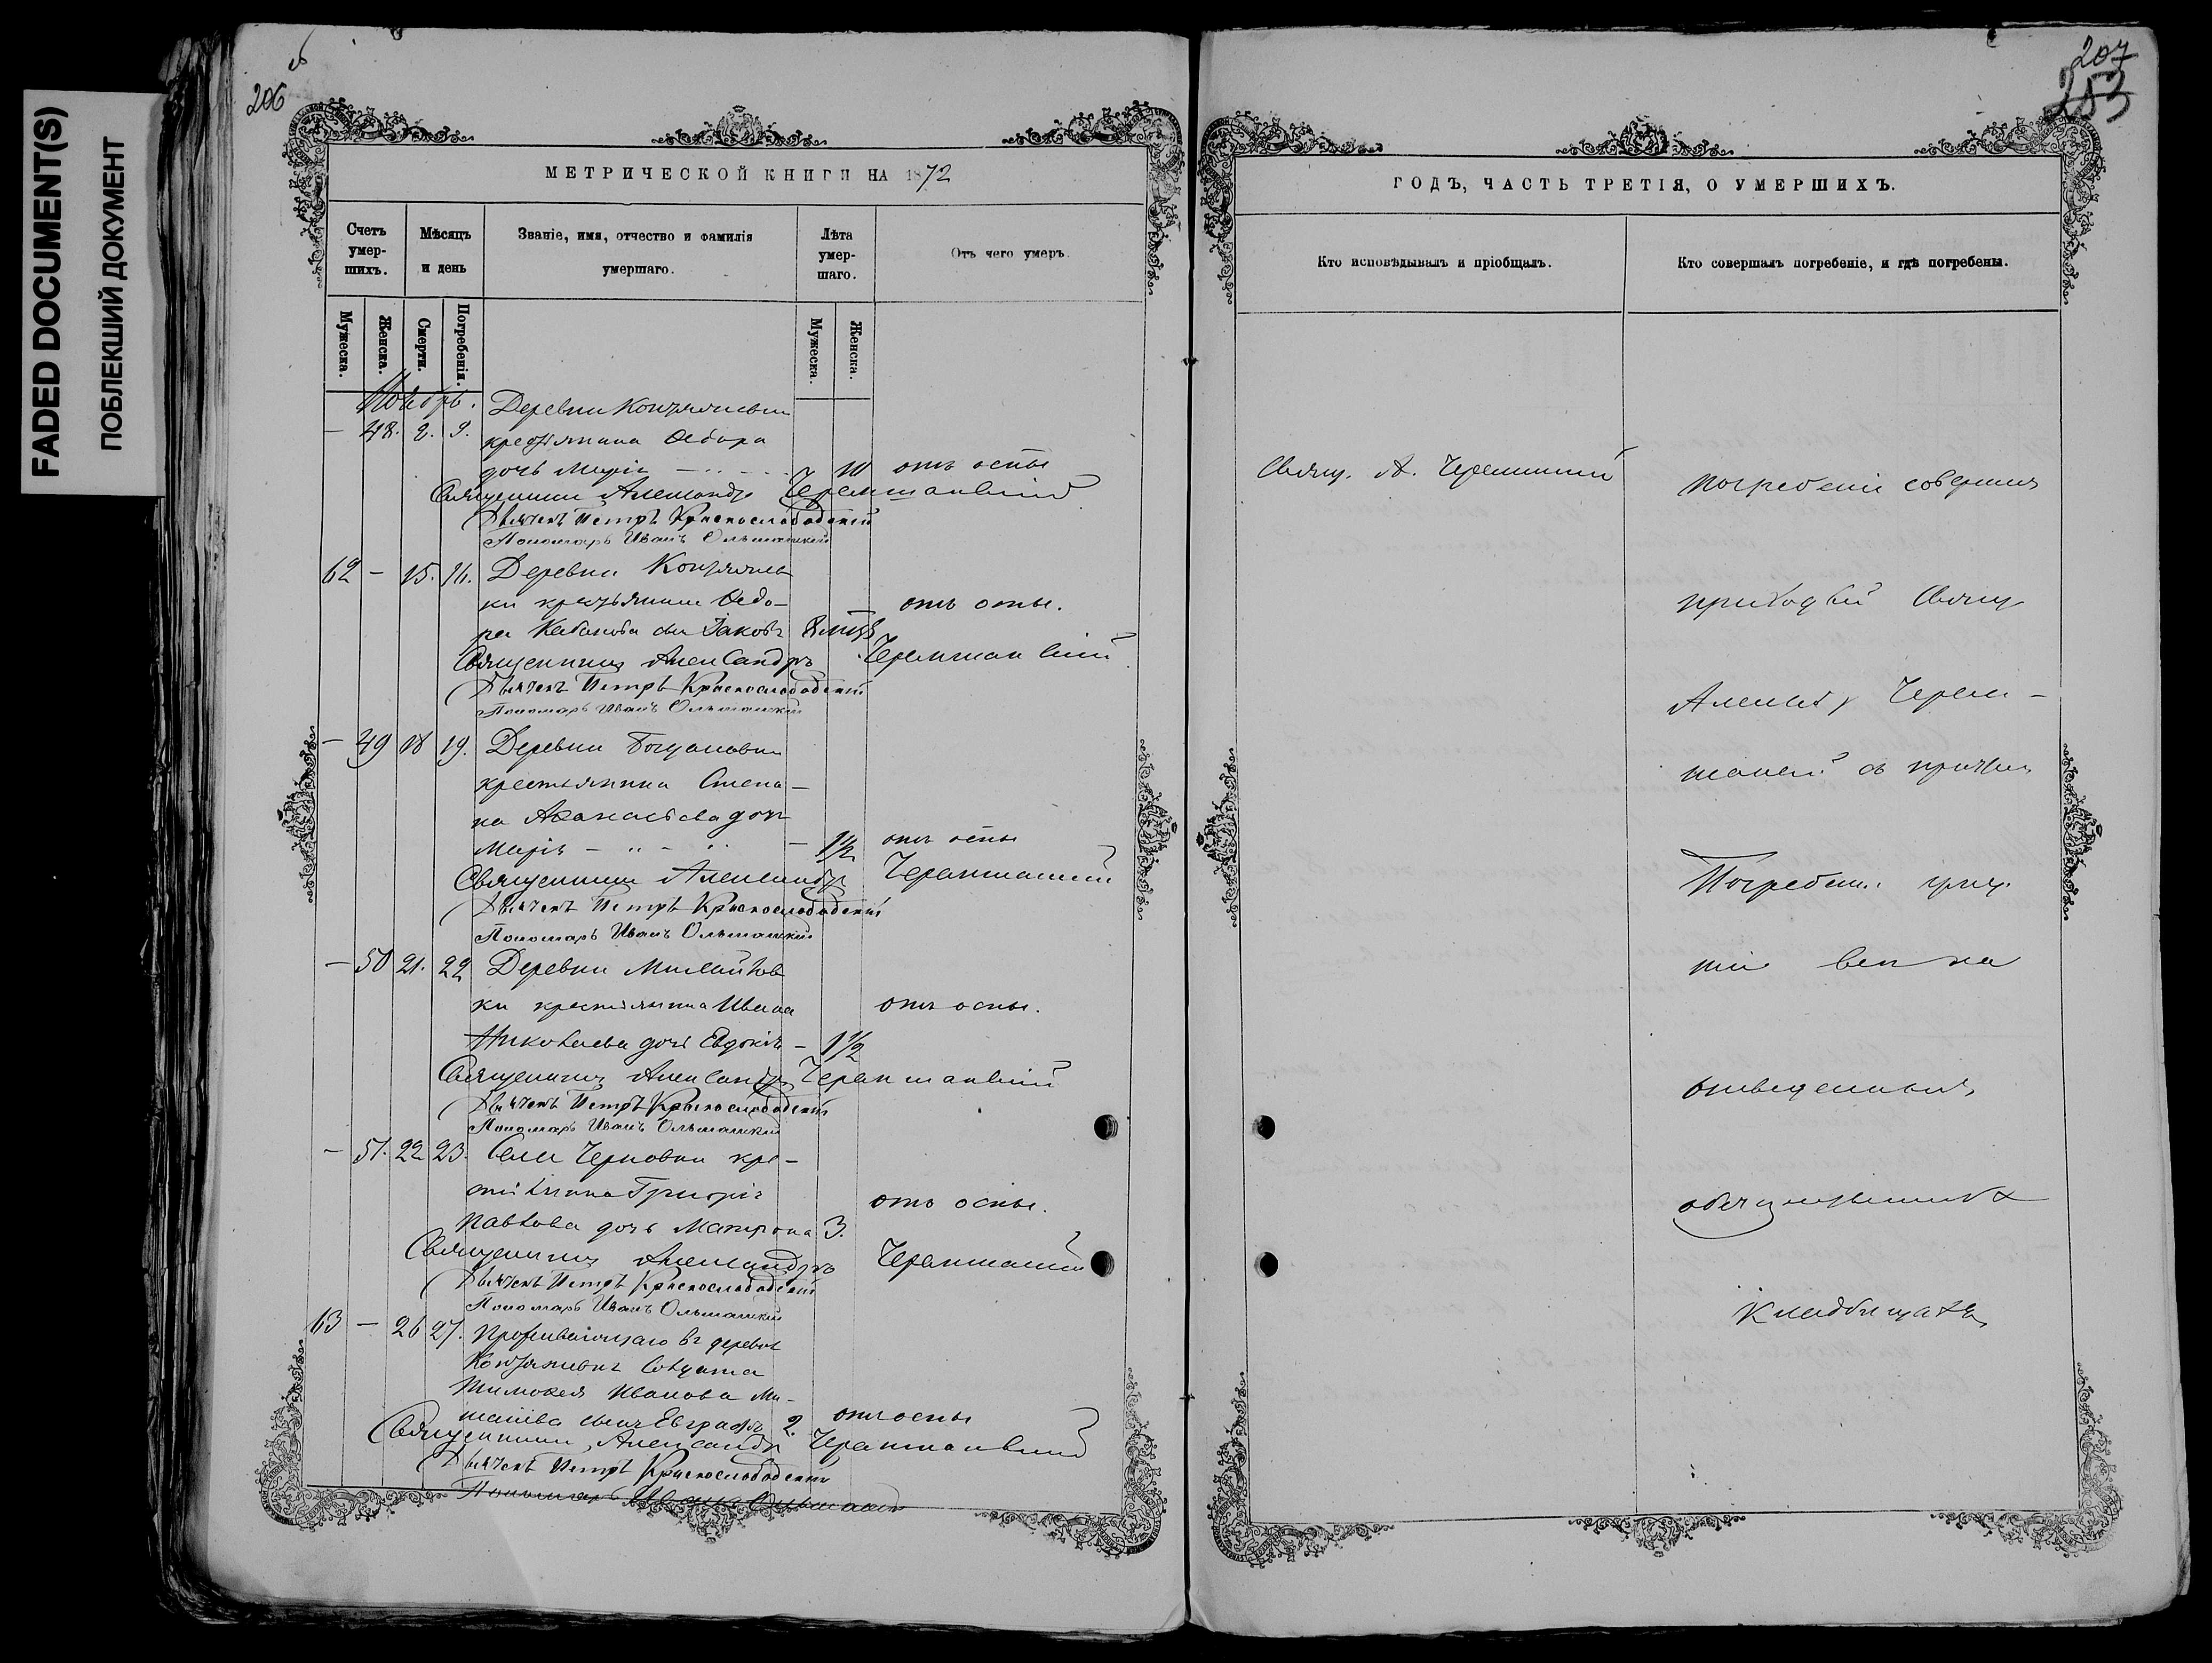 FADED DOCUMENT(S)
ПОБЛЕКШИЙ ДОКУМЕНТ
206
МЕТРИЧЕСКОЙ КНИГИ НА 1872
Счетъ умер-шихъ.
Мѣсяцъ и день
Званіе, имя, отчество и фамилія умершаго.
Лѣта умер-шаго.
Отъ чего умеръ.
Мужеска.
Женска.
Смерти.
Погребенія.
Мужеска.
Женска.
Ноябрь. Деревни
— 48. 8. 9. крестьянина Ѳедора
дочь Марія 10 отъ оспы
Священникъ Александръ Черемшанскій
Дьячекъ Петръ Краснослободскій
Пономарь Иванъ Ольшанскій
62 — 15. 16. Деревни
ки крестьянина Ѳедо- отъ оспы.
ра Кабанова сынъ Іаковъ
Священникъ Александръ Черемшанскій
Дьячекъ Петръ Краснослободскій
Пономарь Иванъ Ольшанскій
— 49 18 19. Деревни Богдановки
крестьянина Степа-
на Аѳанасьева дочь
Марія — 1½ отъ оспы
Священникъ Александръ Черемшанскій
Дьячекъ Петръ Краснослободскій
Пономарь Иванъ Ольшанскій
— 50 21. 22 Деревни
ки крестьянина Ивана отъ оспы.
Николаева дочь Евдокія — 1½
Священникъ Александръ Черемшанскій
Дьячекъ Петръ Краснослободскій
Пономарь Иванъ Ольшанскій
— 51. 22 23. Села Черновки кре-
стьянина Григорія отъ оспы.
Павлова дочь Матрона 3.
Священникъ Александръ Черемшанскій
Дьячекъ Петръ Краснослободскій
Пономарь Иванъ Ольшанскій
63 — 26 27. Проживающаго въ деревнѣ
солдата
Тимоѳея Иванова
сынъ Евграфъ 2. отъ оспы
Священникъ Александръ Черемшанскій
Дьячекъ Петръ Краснослободскій
Пономарь Иванъ Ольшанскій
207
253
ГОДЪ, ЧАСТЬ ТРЕТІЯ, О УМЕРШИХЪ.
Кто исповѣдывалъ и пріобщалъ.
Кто совершалъ погребеніе, и гдѣ погребены.
Свящ. А. Черемшанскій
Погребеніе совершалъ
приходскій Свящ
Александръ Черем-
шанскій съ причтомъ
Погребены
на
отведенныхъ
кладбищахъ